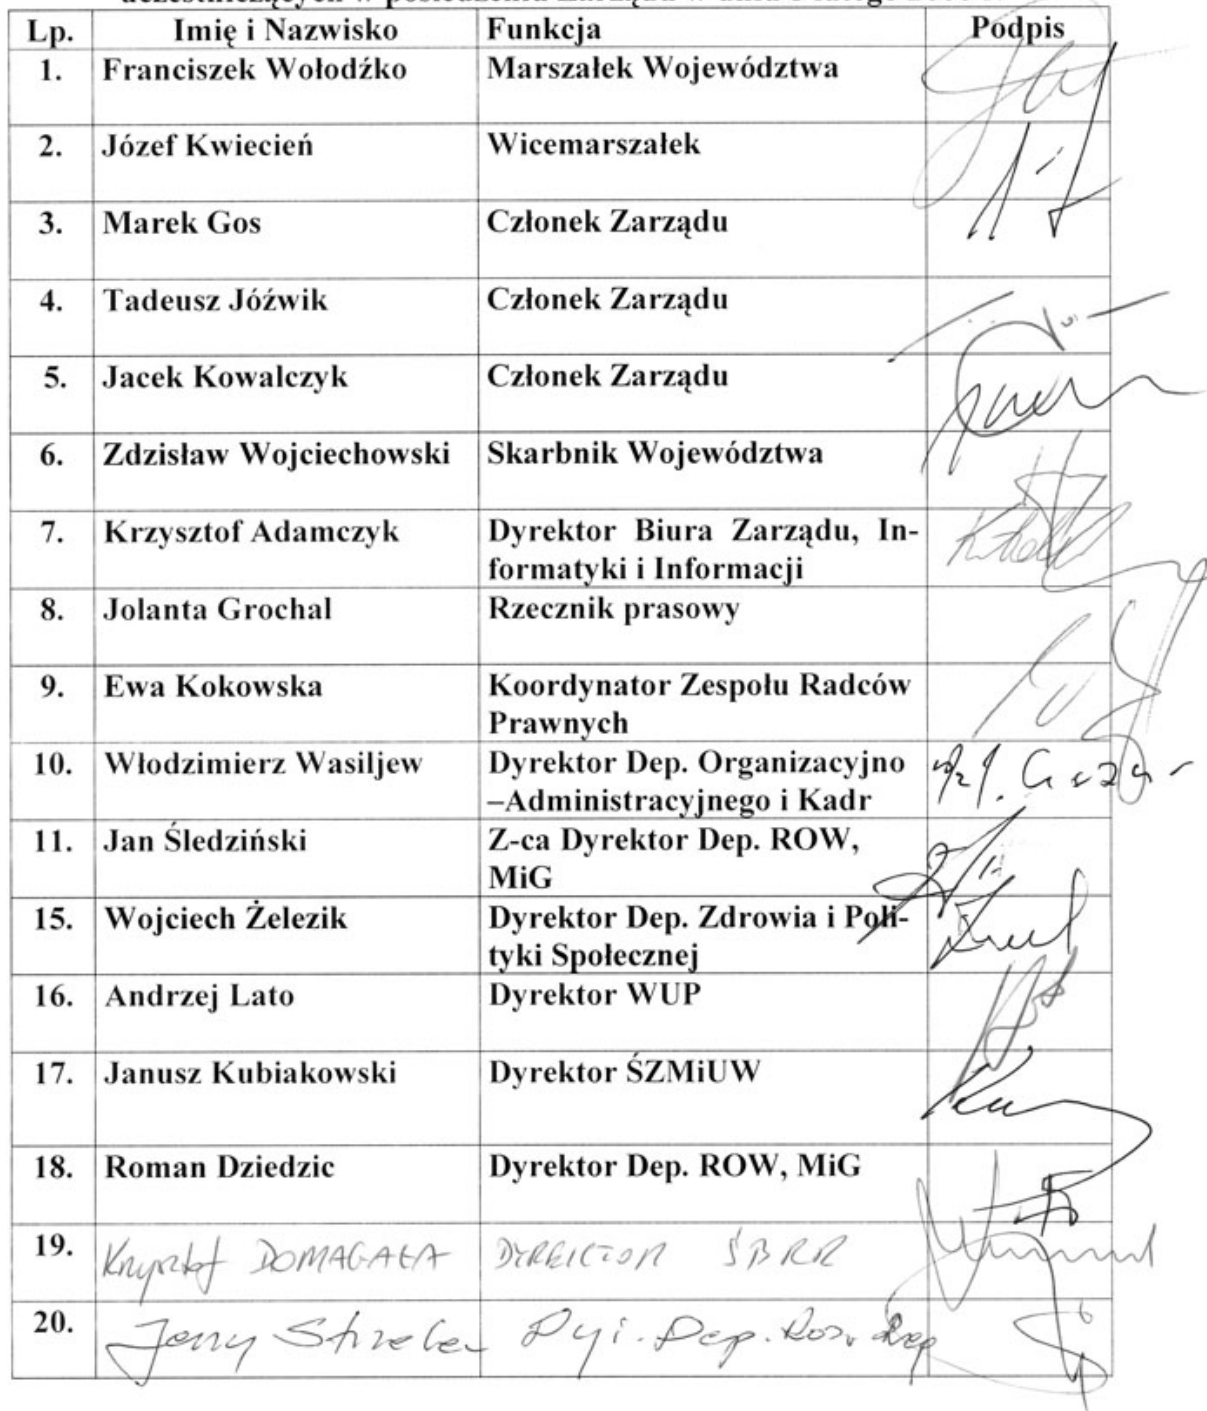 uczestniczących w posiedzeniu Zarządu w dniu
Lp. Imię i Nazwisko Funkcja Podpis
1. Franciszek Wołodźko Marszałek Województwa
2. Józef Kwiecień Wicemarszałek
3. Marek Gos Członek Zarządu
4. Tadeusz Jóźwik Członek Zarządu
5. Jacek Kowalczyk Członek Zarządu
6. Zdzisław Wojciechowski Skarbnik Województwa
7. Krzysztof Adamczyk Dyrektor Biura Zarządu, In-
formatyki i Informacji
8. Jolanta Grochal Rzecznik prasowy
9. Ewa Kokowska Koordynator Zespołu Radców
Prawnych
10. Włodzimierz Wasiljew Dyrektor Dep. Organizacyjno
–Administracyjnego i Kadr
11. Jan Śledziński Z-ca Dyrektor Dep. ROW,
MiG
15. Wojciech Żelezik Dyrektor Dep. Zdrowia i Poli-
tyki Społecznej
16. Andrzej Lato Dyrektor WUP
17. Janusz Kubiakowski Dyrektor ŚZMiUW
18. Roman Dziedzic Dyrektor Dep. ROW, MiG
19. Krzysztof DOMAGAŁA DYREKTOR ŚBRR
20. Jerzy Dep.